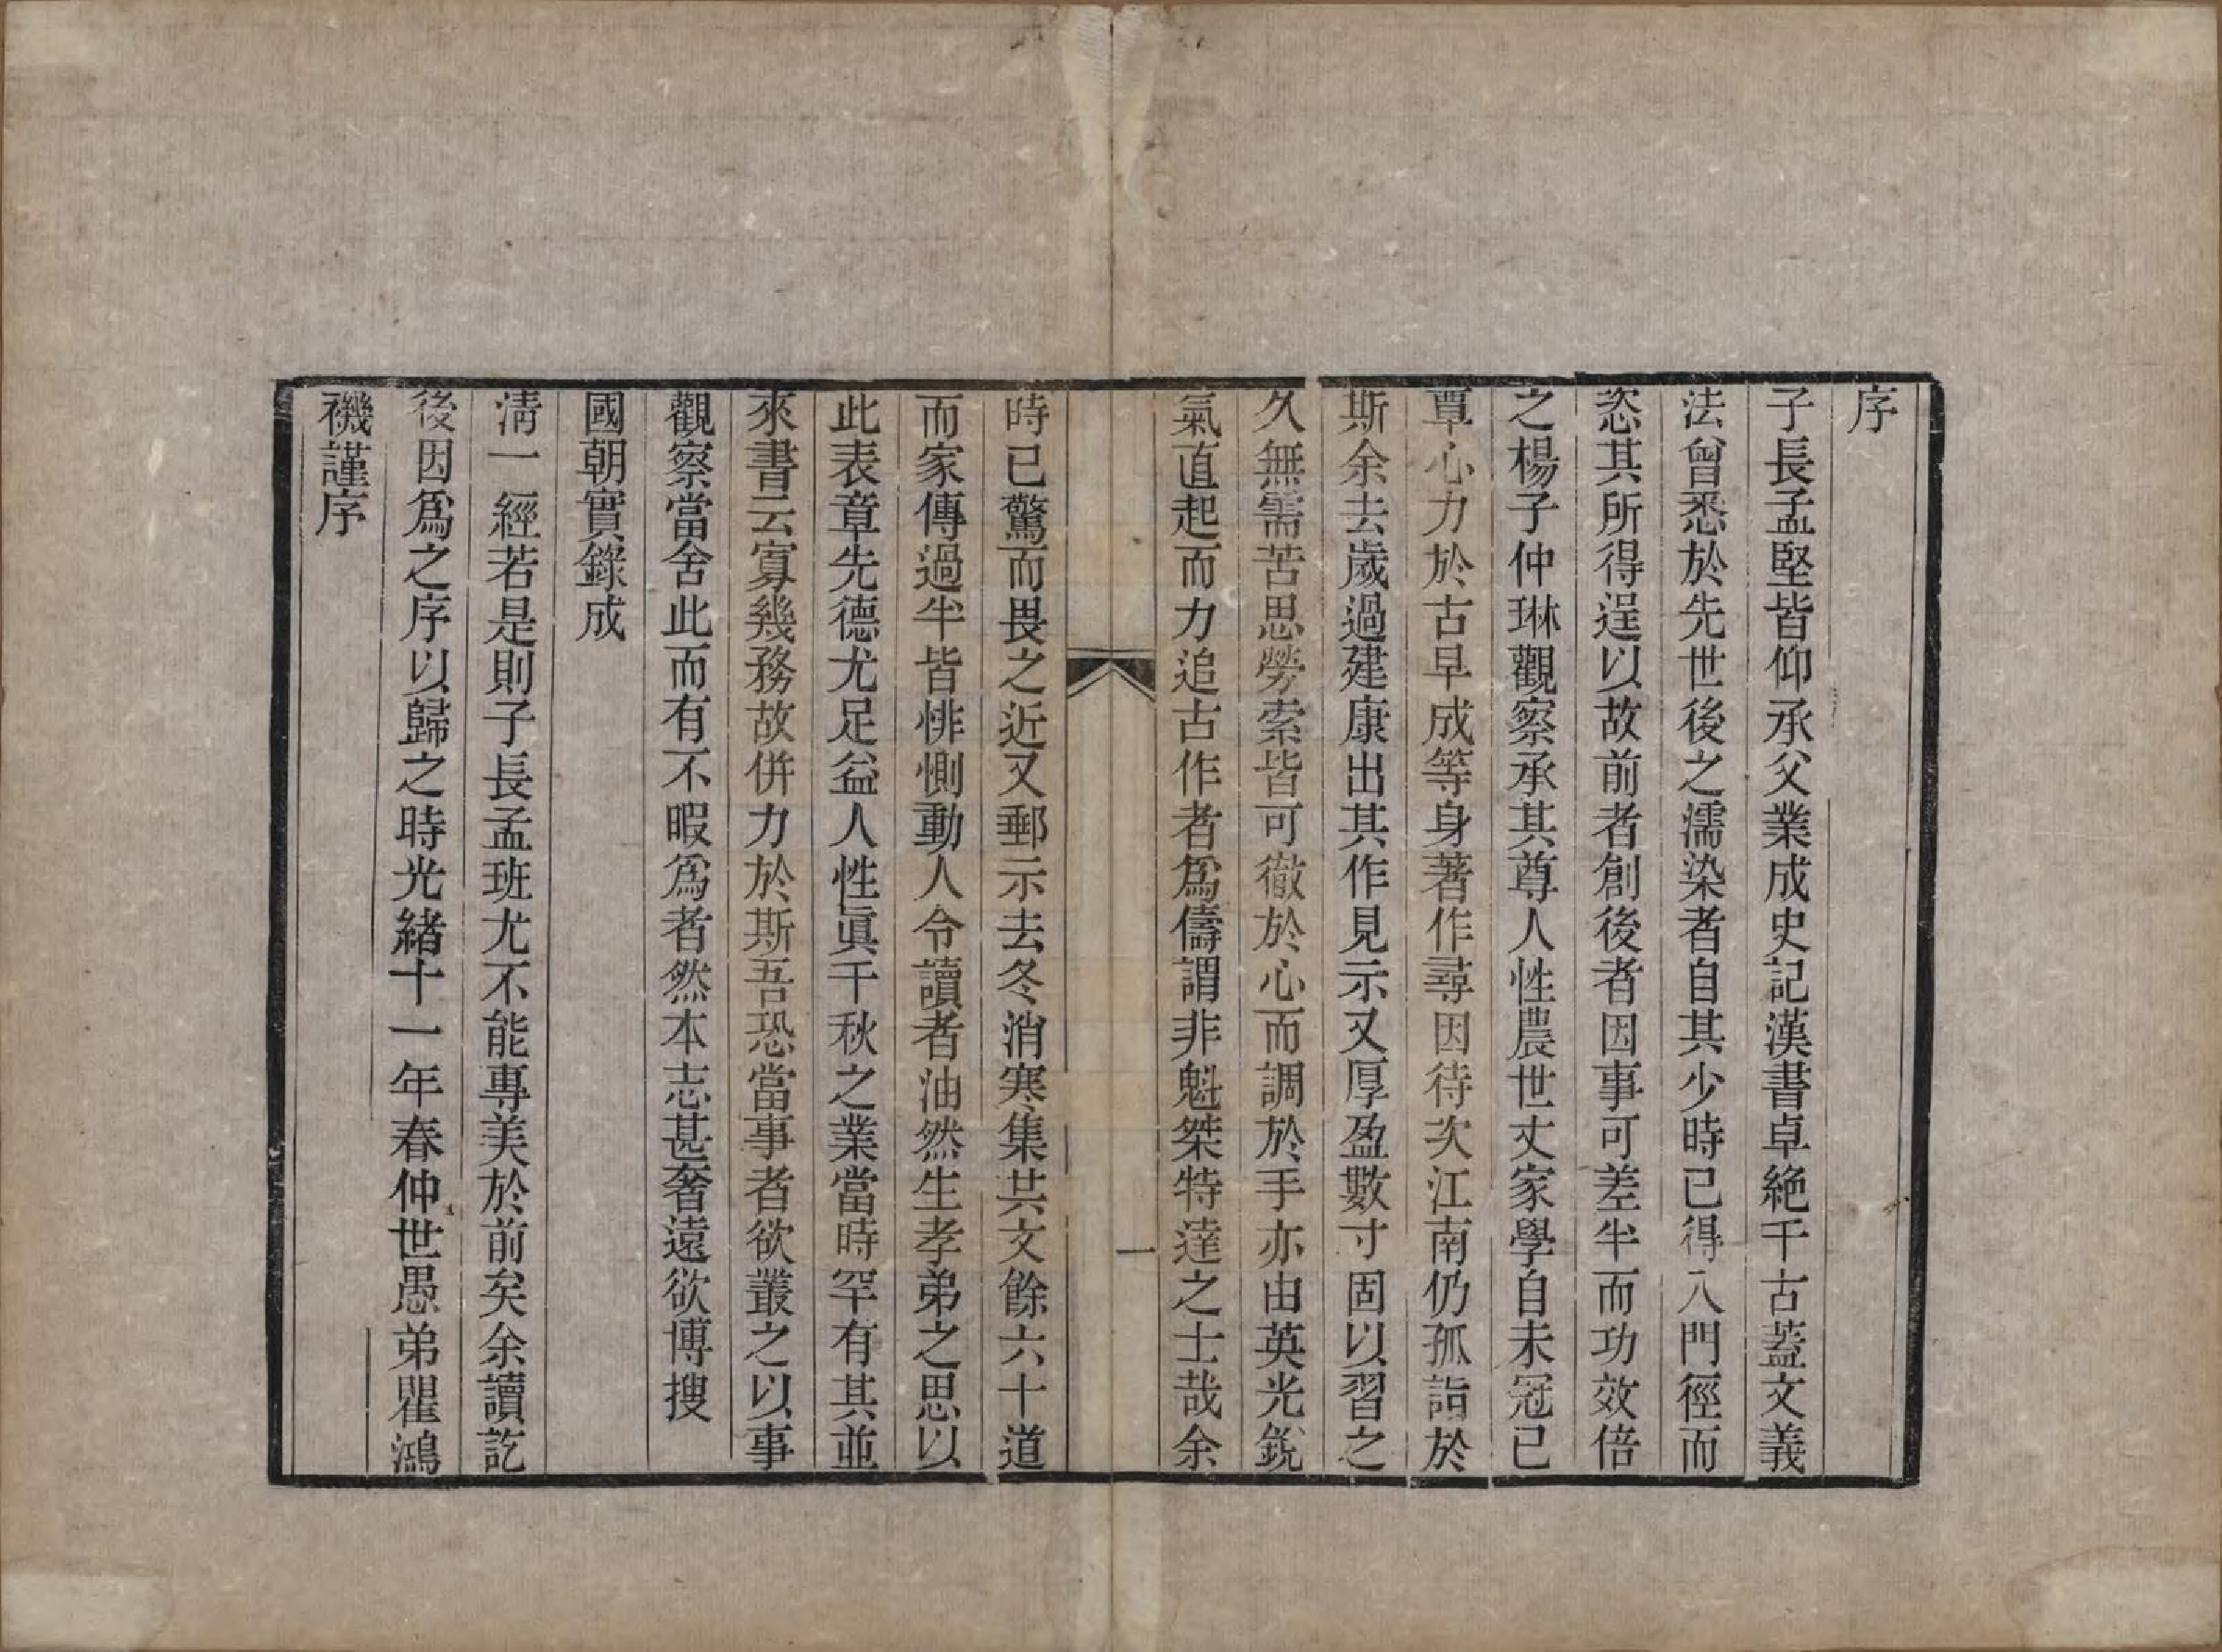 序
子長孟堅皆仰承父業成史記漢書卓絕千古蓋文義
法曾悉於先世後之濡染者自其少時已得入門徑而
恣其所得逞以故前者創後者因事可差半而功效倍
之楊子仲琳觀察承其尊人性農世丈家學自未冠已
覃心力於古早成等身著作尋因待次江南仍孤詣於
斯余去歲過建康出其作見示又厚盈數寸固以習之
久無需苦思勞索皆可徹於心而調於手亦由英光銳
氣直起而力追古作者爲儔謂非魁桀特達之士哉余
一
時已驚而畏之近又郵示去冬消寒集共文餘六十道
而家傳過半皆悱惻動人令讀者油然生孝弟之思以
此表章先德尤足益人性眞千秋之業當時罕有其並
來書云寡幾務故併力於斯吾恐當事者欲叢之以事
觀察當舍此而有不暇爲者然本志甚奢遠欲博搜
國朝實錄成
淸一經若是則子長孟班尤不能專美於前矣余讀訖
後因爲之序以歸之時光緒十一年春仲世愚弟瞿鴻
禨謹序